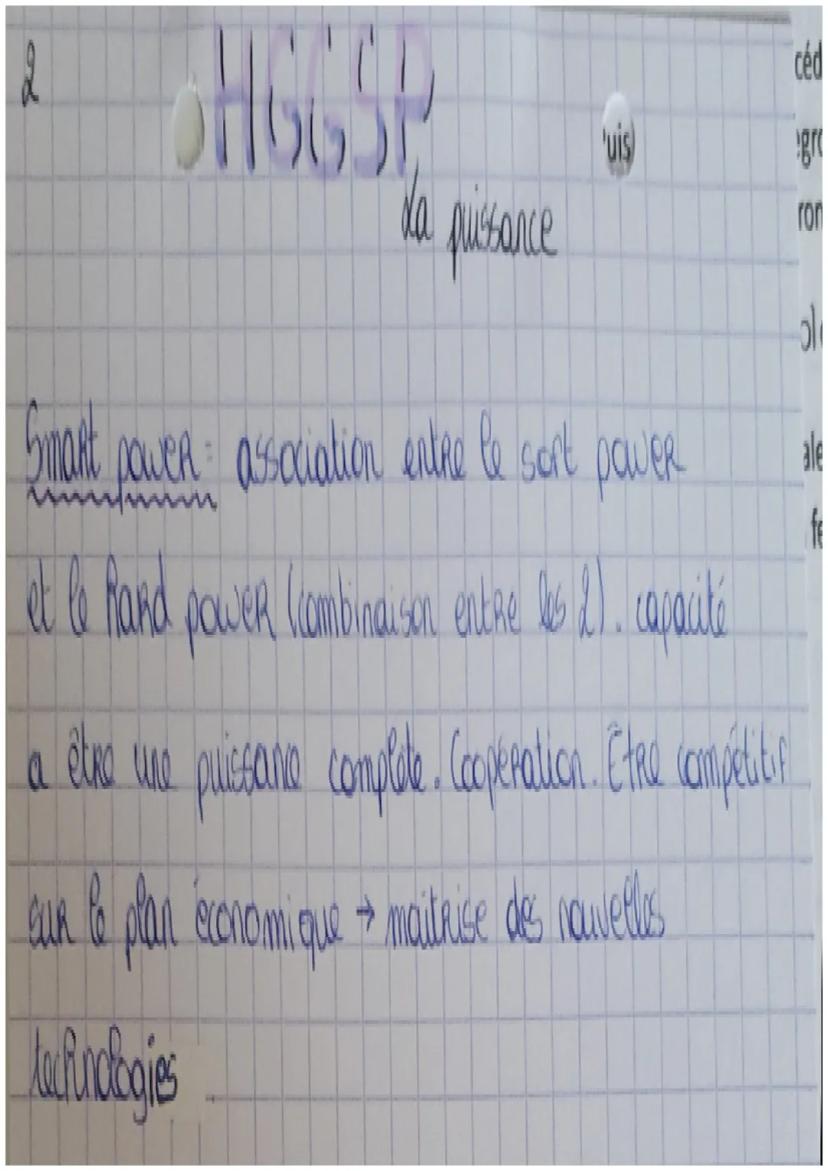 2
HGGSP
uis
La puissance
Smart power : association entre le soft power
et le hard power (combinaison entre les 2). capacité
a être une puissance complète. Coopération. Être compétitif
sur le plan économique → maitrise des nouvelles
technologies
céd
egro
ron
ole
ale
fe